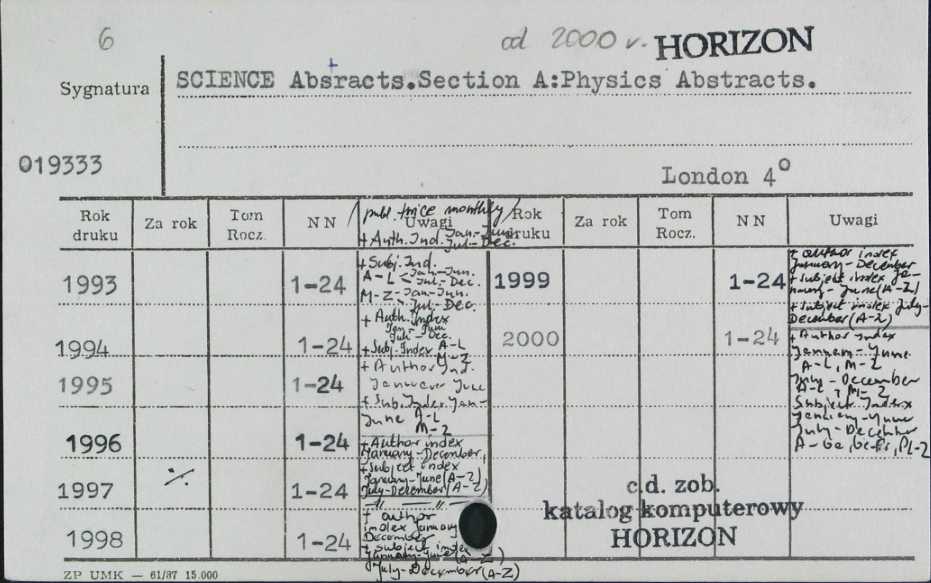 6 od 2000 r. HORIZON
Sygnatura SCIENCE Absracts.Section A:Physics Abstracts.
t
019333
London 4°
publ. twice monthly
Rok druku Za rok Tom Rocz. N N Uwagi Rok druku Za rok Tom Rocz. N N Uwagi
+ Auth. Ind. Jan-Jun. Jul-Dec.
1993 1-24
+ Subj. Ind.
A-L Jan-Jun. Jul-Dec.
M-Z Jan-Jun. Jul-Dec.
1994 1-24
+ Auth. Index
Jan-Jun
Jul-Dec.
+ Subj. Index A-L
M-Z
1995 1-24
+ Author Ind.
June
+ Sub. Index Jan-
June A-L
M-Z
1996 1-24
+ Author index
January-December,
+ subject index
January-June (A-Z)
July-December (A-Z)
1997 ·/· 1-24
—〃— —〃—
1998 1-24
+ author
index January
December
+ subject index
January-June (A-Z)
July-December (A-Z)
1999 1-24
+ author index
January-December
+ subject index Ja-
nuary-June (A-Z)
+ subject index July-
December (A-Z)
2000 1-24
+ Author Index
January-June
A-L, M-Z
July-December
A-L, M-Z
Subject Index
January-June
July-December
A-Ge,
c.d. zob.
katalog komputerowy
HORIZON
ZP UMK — 61/87 15.000